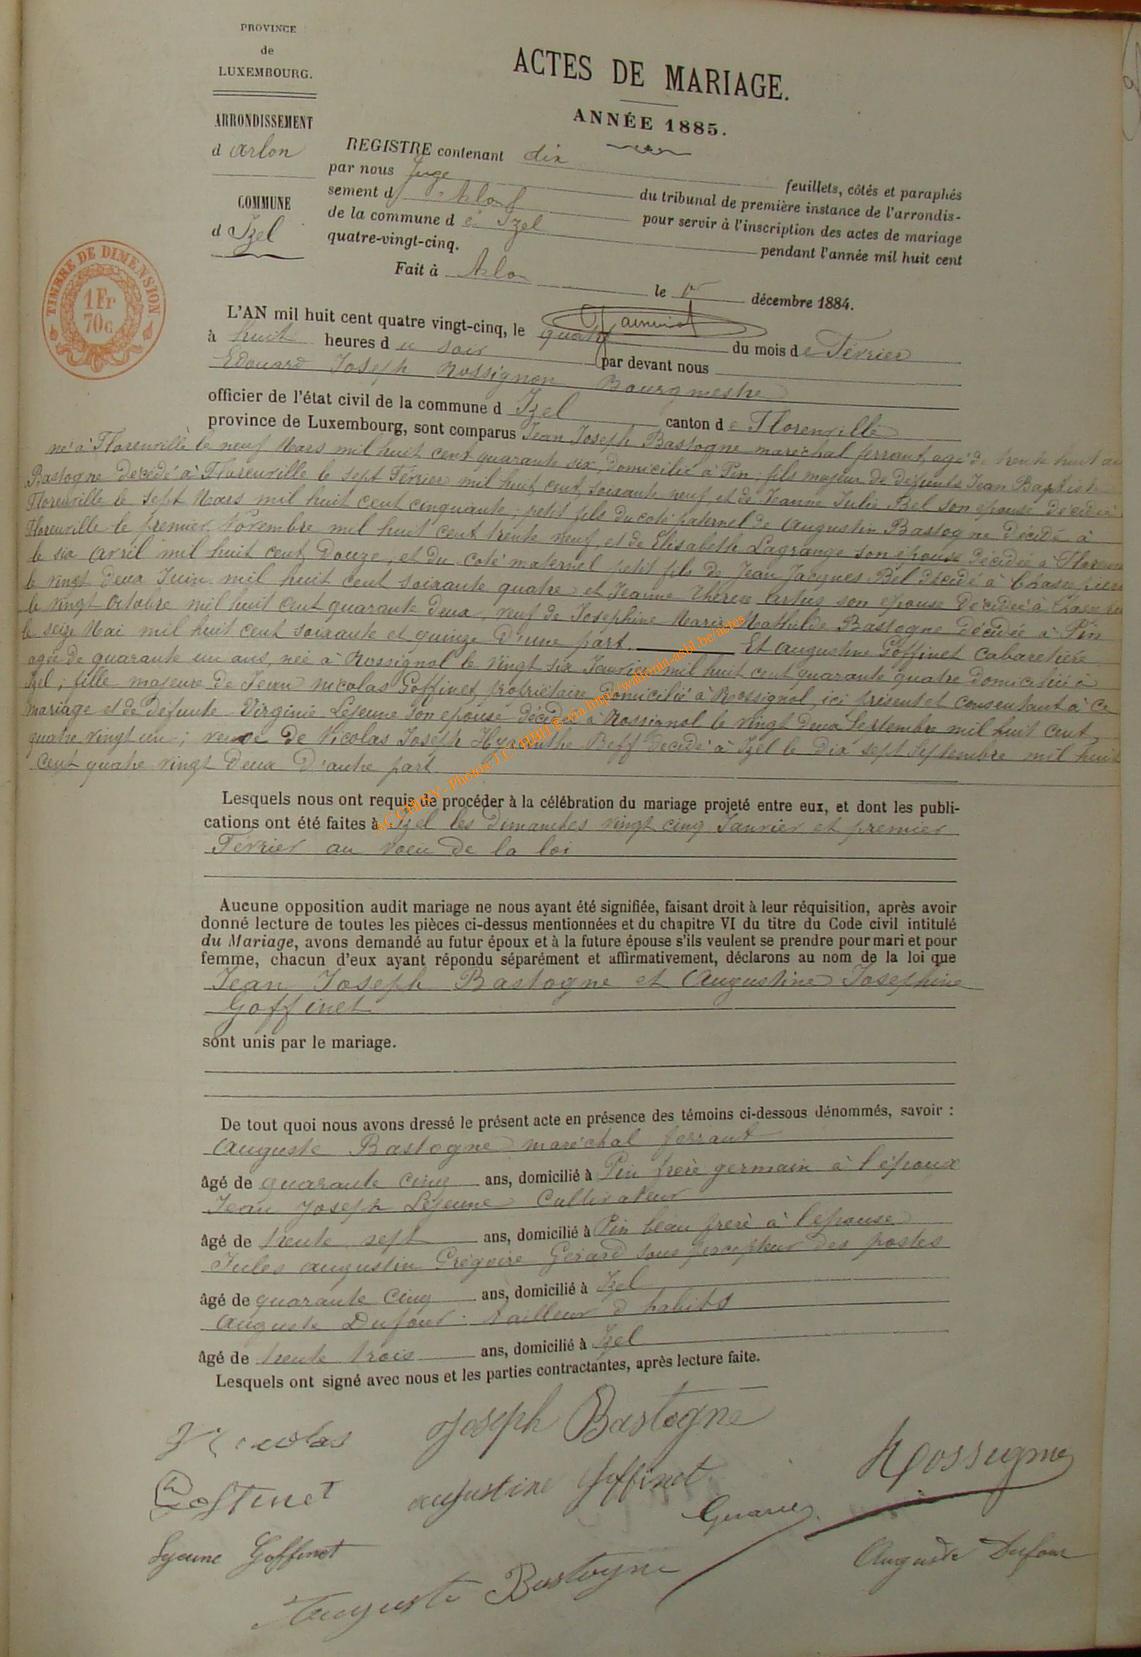 PROVINCE
de
LUXEMBOURG.
ARRONDISSEMENT
d'Arlon
COMMUNE
d'Izel
TIMBRE DE DIMENSION
1 Fr
70c
ACTES DE MARIAGE.
ANNÉE 1885.
REGISTRE contenant dix feuillets, côtés et paraphés
par nous Juge du tribunal de première instance de l'arrondis-
sement d'Arlon pour servir à l'inscription des actes de mariage
de la commune d'Izel pendant l'année mil huit cent
quatre-vingt-cinq.
Fait à Arlon le décembre 1884.
L'AN mil huit cent quatre vingt-cinq, le quatre du mois de Février
à huit heures du soir par devant nous
Edouard Joseph Rossignon Bourgmestre
officier de l'état civil de la commune d'Izel canton de Florenville
province de Luxembourg, sont comparus Jean Joseph Bastogne maréchal ferrant, agé de trente huit ans
né à Florenville le neuf Mars mil huit cent quarante six, domicilié à Pin, fils majeur de défunts Jean Baptiste
Bastogne décédé à Florenville le sept Février mil huit cent soixante neuf et de Jeanne Julie Bel son épouse décédée à
Florenville le sept Mars mil huit cent cinquante; petit fils du coté paternel de Augustin Bastogne décédé à
Florenville le premier Novembre mil huit cent trente neuf, et de Elisabeth Lagrange son épouse décédée à
le six Avril mil huit cent douze, et du coté maternel petit fils de Jean Jacques Bel décédé à
le vingt deux Juin mil huit cent soixante quatre et Jeanne Thérèse son épouse décédée à
le vingt Octobre mil huit cent quarante deux, veuf de Josephine Marie Mathilde Bastogne décédée à Pin
le seize Mai mil huit cent soixante et quinze d'une part. Et Augustine Goffinet Cabaretière
agée de quarante un ans, née à Rossignol le vingt six Janvier mil huit cent quarante quatre domiciliée à
Izel; fille majeure de Jean Nicolas Goffinet propriétaire domicilié à Rossignol, ici présent et consentant à ce
mariage et de défunte Virginie Lejeune son épouse décédée à Rossignol le vingt deux Septembre mil huit cent
quatre vingt un; veuve de Nicolas Joseph Hyacinthe décédé à Izel le dix sept Septembre mil huit
cent quatre vingt deux d'autre part
Lesquels nous ont requis de procéder à la célébration du mariage projeté entre eux, et dont les publi-
cations ont été faites à Izel les dimanches vingt cinq Janvier et premier
Février au voeu de la loi
Aucune opposition audit mariage ne nous ayant été signifiée, faisant droit à leur réquisition, après avoir
donné lecture de toutes les pièces ci-dessus mentionnées et du chapitre VI du titre du Code civil intitulé
du Mariage, avons demandé au futur époux et à la future épouse s'ils veulent se prendre pour mari et pour
femme, chacun d'eux ayant répondu séparément et affirmativement, déclarons au nom de la loi que
Jean Joseph Bastogne et Augustine Josephine
Goffinet
sont unis par le mariage.
De tout quoi nous avons dressé le présent acte en présence des témoins ci-dessous dénommés, savoir :
Auguste Bastogne maréchal ferrant
âgé de quarante cinq ans, domicilié à Pin frère germain à l'époux
Jean Joseph Lejeune Cultivateur
âgé de trente sept ans, domicilié à Pin beau frère à l'épouse
Jules Augustin Grégoire Gérard sous percepteur des postes
âgé de quarante cinq ans, domicilié à Izel
Auguste Dufour tailleur d'habits
âgé de trente trois ans, domicilié à Izel
Lesquels ont signé avec nous et les parties contractantes, après lecture faite.
Nicolas Joseph Bastogne
Goffinet Augustine Goffinet Rossignon
Lejeune Goffinet Auguste Dufour
Auguste Bastogne